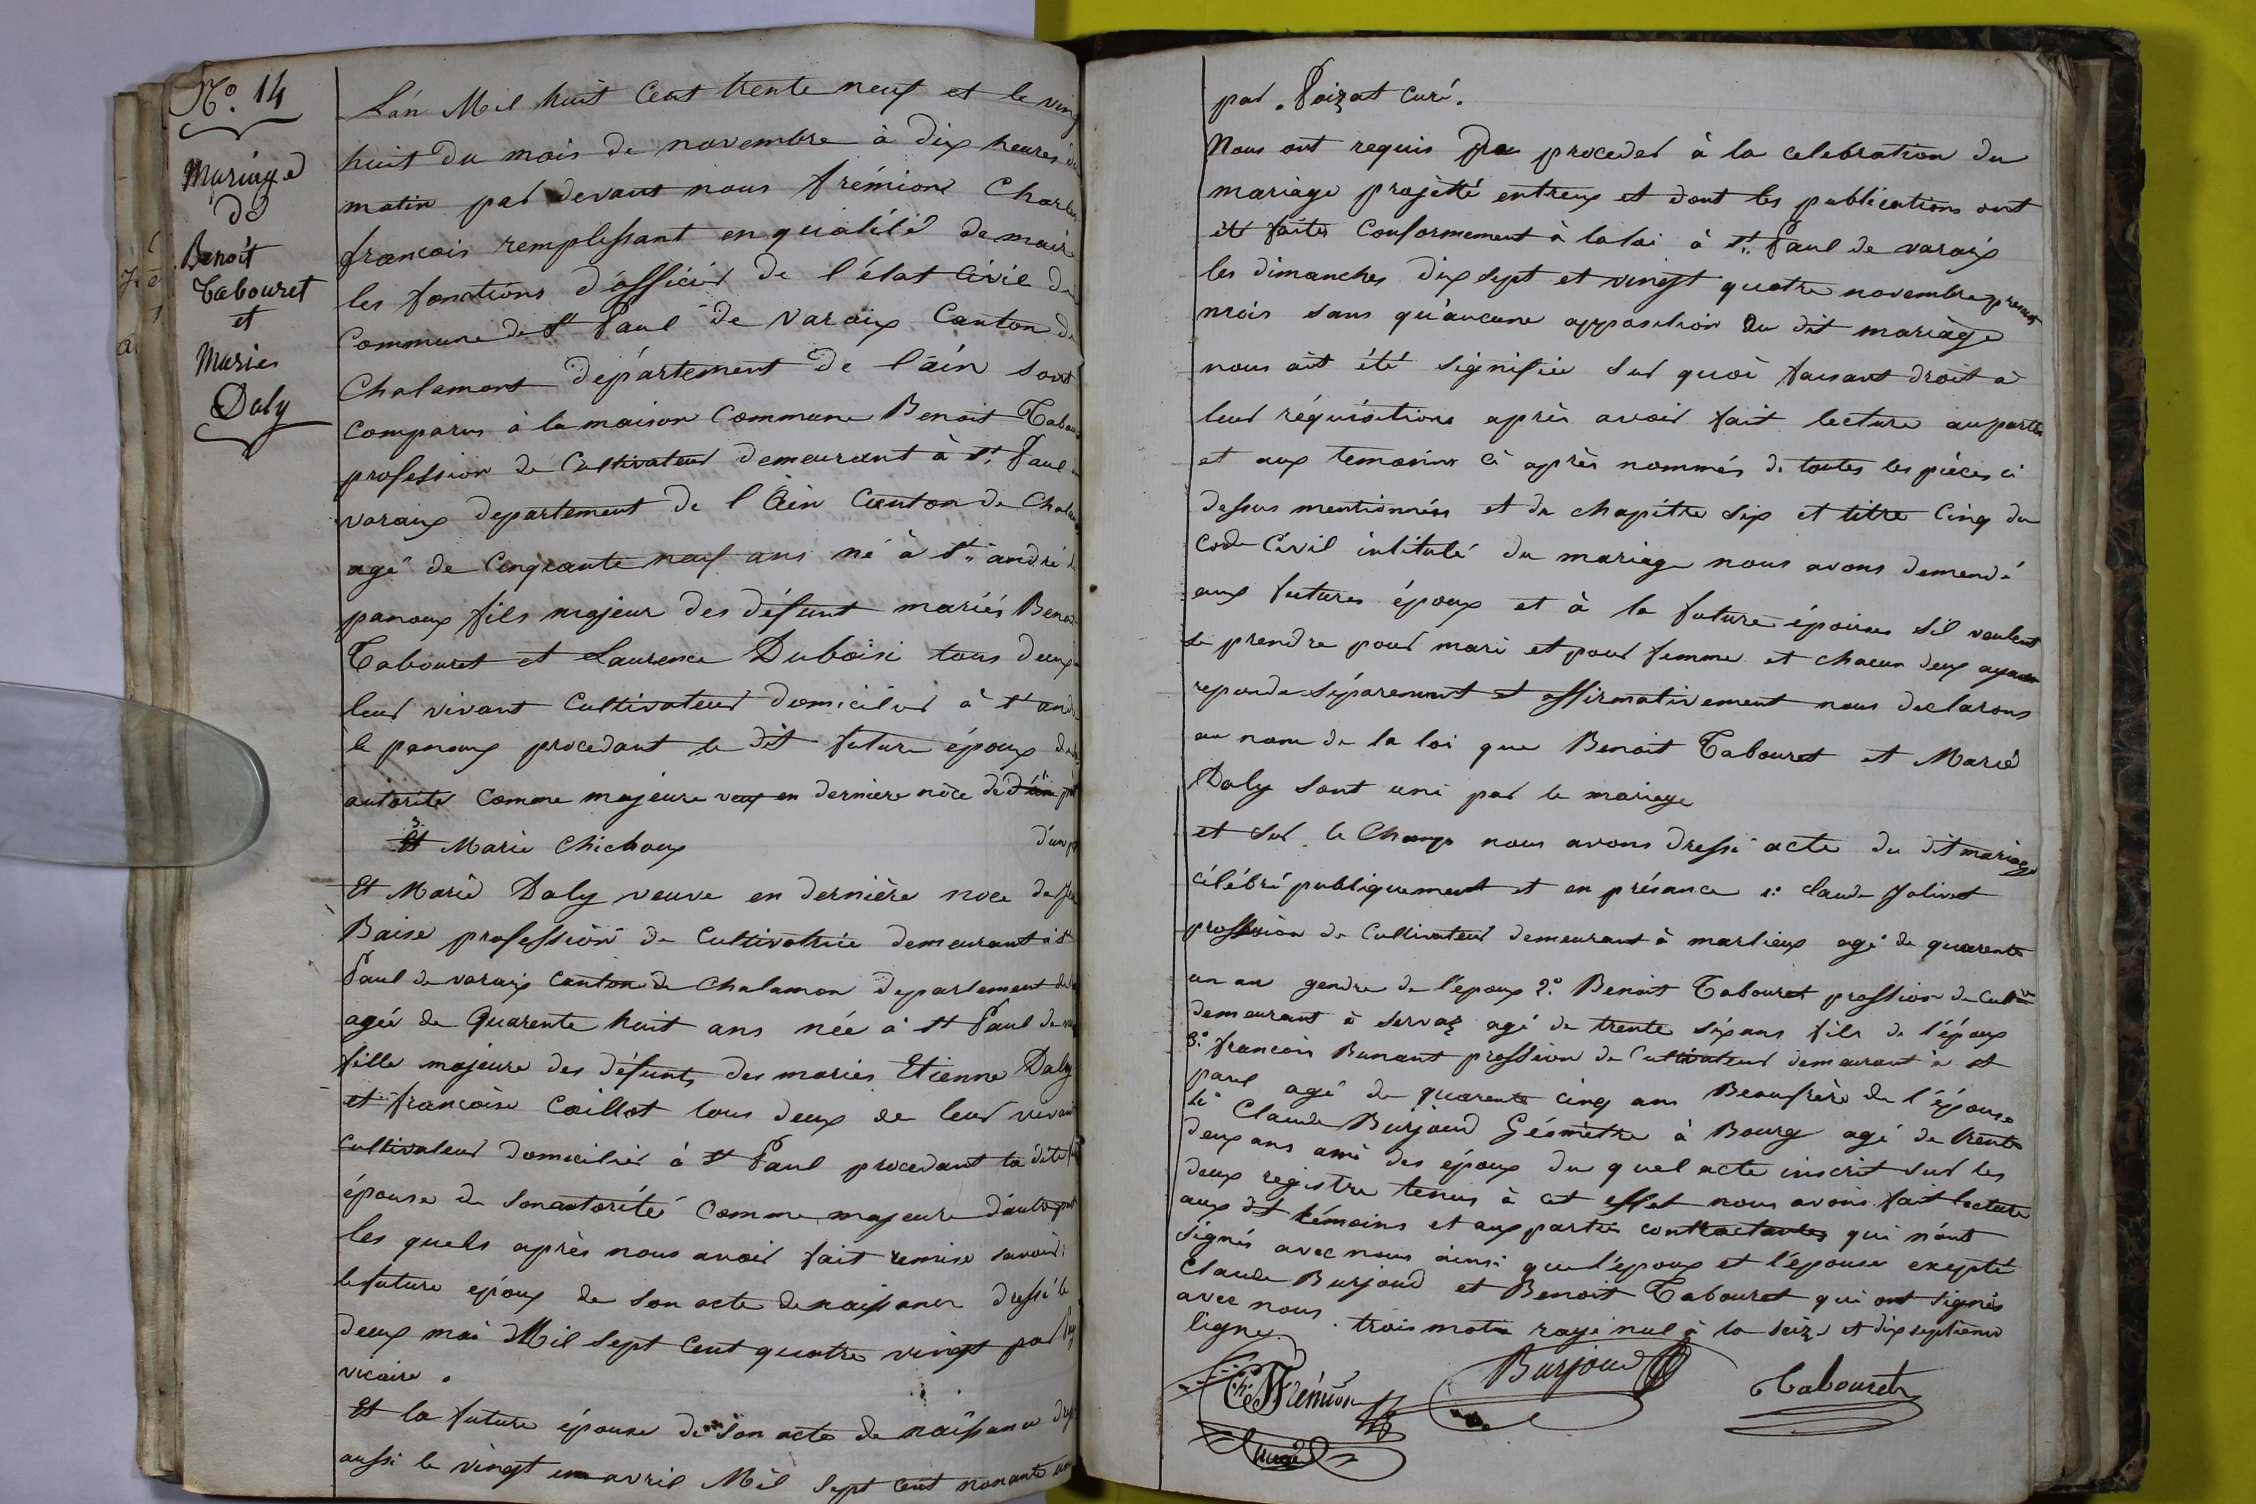 N.º 14
Mariage
de
Benoît
Tabouret
et
Marie
Daly
L'an Mil huit Cent trente neuf et le vingt
huit du mois de novembre à dix heures du
matin par devant nous frémion Charles
francois remplissant en qualité de maire
les fonctions d'officier de l'état Civil de
Commune de St Paul de Varaix Canton de
Chalamont département de l'ain sont
comparus à la maison Commune Benoit Tabouret
profession de Cultivateur demeurant à St Paul
varaix departement de l'Ain Canton de Chalam
agé de Cinquante neuf ans né à St andré le
panoux fils majeur des défunt mariés Benoit
Tabouret et Laurence Duboisi tous deux
leur vivant Cultivateur domicilié à St andré
le panoux procedant le dit future époux de
autorite Comme majeure veuf en derniere nôce de
Et Marie Chichoux d'une p
Et Marie Daly veuve en dernière noce de
Baise profession de Cultivatrice demeurant à St
Paul de varaix Canton de Chalamon departement de
agée de Quarente huit ans née à St Paul de
fille majeure des défunts des mariés Etienne Daly
et françoise Caillat tous deux de leur vivant
Cultivateur domiciliés à St Paul procedant la dite
épouse de son autorité Comme majeure d'autre part
les quels après nous avoir fait remise savoir:
le future époux de son acte de naissance dressé le
deux mai Mil Sept Cent quatre vingt par
vicaire.
Et la future épouse de son acte de naissance
aussi le vingt un avril Mil Sept Cent nonante un
par. Poizat curé.
Nous ont requis proceder à la celebration du
mariage projetté entreux et dont les publications ont
été faites Conformement à la loi à St Paul de varaix
les dimanches dix sept et vingt quatre novembre present
mois sans qu'aucune opposition du dit mariage
nous ait été signifiée sur quoi faisant droit à
leur réquisitions après avoir fait lecture auparties
et aux temoins ci après nommés de toutes les pièces ci
dessus mentionnées et du chapitre six et titre Cinq du
code Civil intitulé du mariage nous avons demendé
aux futures époux et à la future épouse s'il veulent
se prendre pour mari et pour femme et chacun deux ayant
reponde séparement et affirmativement nous declarons
au nom de la loi que Benoit Tabouret et Marie
Daly sont uni par le mariage
et sur le Champ nous avons dressé acte du dit mariage
célébré publiquement et en présance 1: Claude Jolivet
profession de Cultivateur demeurant à marlieux agé de quarente
un an gendre de l'époux 2.º Benoit Tabouret profession de Cultiv
demeurant à Servaz agé de trente six ans fils de l'époux
3.º francois Bunant profession de Cultivateur demeurant à St
paul agé de quarente cinq ans Beaufrère de l'épouse
4.º Claude Burjoud Géomètre à Bourg agé de trente
deux ans ami des époux du quel acte inscrit sur les
deux registre tenus à cet effet nous avons fait lecture
aux dt témoins et aux parties contractantes qui n'ont
signés avec nous ainsi que l'époux et l'épouse exepté
Claude Burjoud et Benoit Tabouret qui ont signés
avec nous. trois mots rayé nul à la seize et dix septieme
ligne.
Ch Frémion
Burjoud
Tabouret